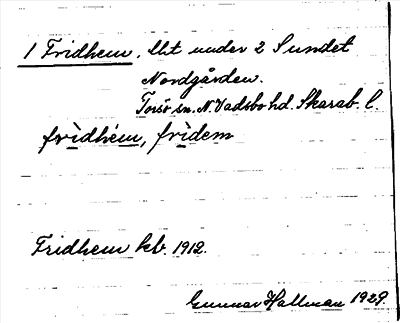 1 Fridhem. Lht under 2 Sundet
Nordgården.
Torsö sn. N. Vadsbo hd. Skarab. l.
frìdhem, frìdem
Fridhem kb. 1912.
Gunnar Hallman 1929.